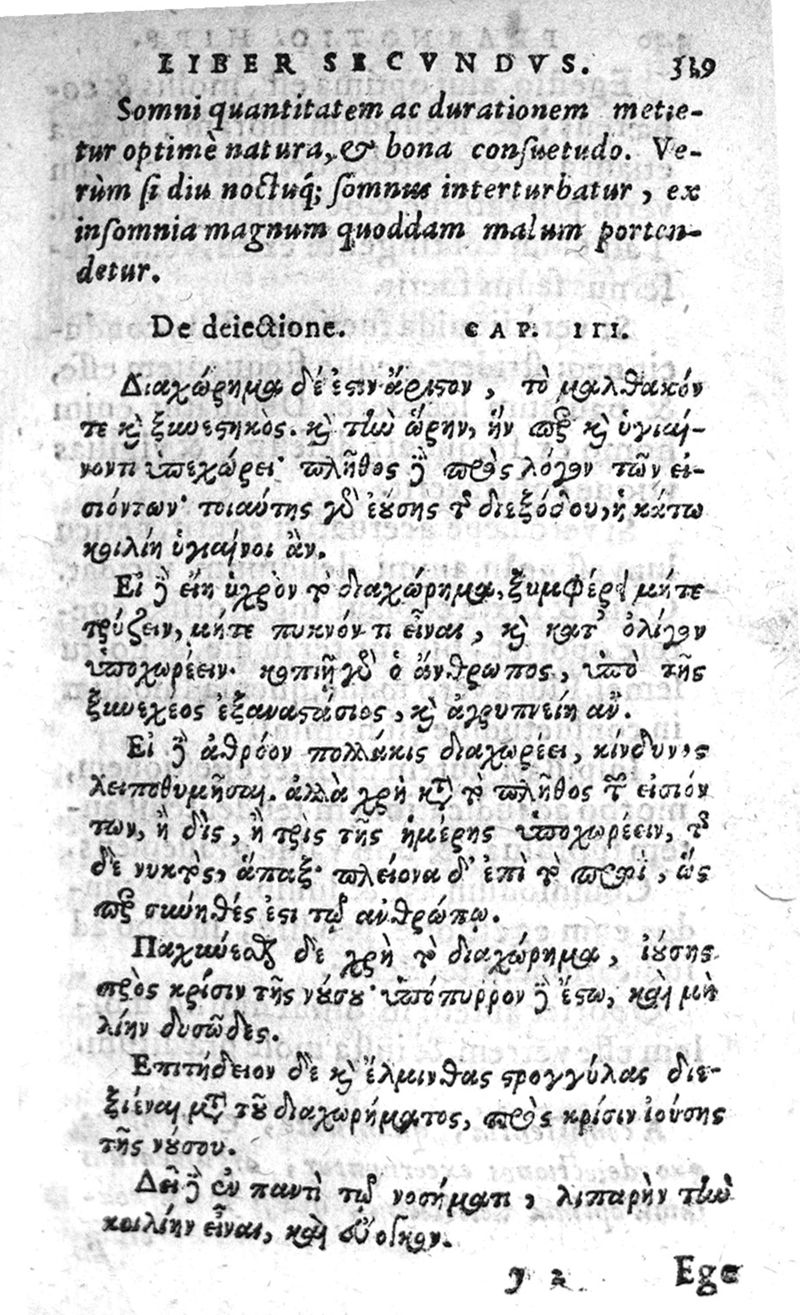 LIBER SECVNDVS. 319
Somni quantitatem ac durationem metie-
tur optimè natura, & bona consuetudo. Ve-
rùm si diu noctuq́; somnus interturbatur, ex
insomnia magnum quoddam malum porten-
detur.
De deiectione. CAP. III.
Διαχώρημα δέ ἐστιν ἄριστον, τὸ μαλθακόν
τε κ̀ ξυνεστηκὸς. κ̀ τὴν ὥρην, ἥν περ κ̀ ὑγιαί-
νοντι ὑπεχώρει· πλῆθος δὲ πρὸς λόγον τῶν εἰ-
σιόντων· τοιαύτης γὰρ ἐούσης τῆς διεξόδου, ἡ κάτω
κοιλίη ὑγιαίνοι ἄν.
Εἰ δὲ εἴη ὑγρὸν τὸ διαχώρημα, ξυμφέρει μήτε
τρύζειν, μήτε πυκνόν τι εἶναι, κ̀ κατ' ὀλίγον
ὑποχωρέειν· κοπιῇ γὰρ ὁ ἄνθρωπος, ὑπὸ τῆς
ξυνεχέος ἐξαναστάσιος, κ̀ ἀγρυπνείη ἄν.
Εἰ δὲ ἀθρόον πολλάκις διαχωρέει, κίνδυνος
λειποθυμῆσαι. ἀλλὰ χρὴ κατὰ τὸ πλῆθος τῶν εἰσιόν
των, ἢ δὶς, ἢ τρὶς τῆς ἡμέρης ὑποχωρέειν, τῆς
δὲ νυκτὸς, ἅπαξ· πλείονα δ' ἐπὶ τὸ πρωῒ, ὥς
περ σύνηθές ἐστι τῷ ἀνθρώπῳ.
Παχύνεσθαι δὲ χρὴ τὸ διαχώρημα, ἰούσης
πρὸς κρίσιν τῆς νούσου· ὑπόπυρρον δὲ ἔστω, καὶ μὴ
λίην δυσῶδες.
Ἐπιτήδειον δὲ κ̀ ἕλμινθας στρογγύλας διε-
ξιέναι μετὰ τοῦ διαχωρήματος, πρὸς κρίσιν ἰούσης
τῆς νούσου.
Δεῖ δὲ ἐν παντὶ τῷ νοσήματι, λιπαρὴν τὴν
κοιλίην εἶναι, καὶ εὔογκον.
y 2 Ege